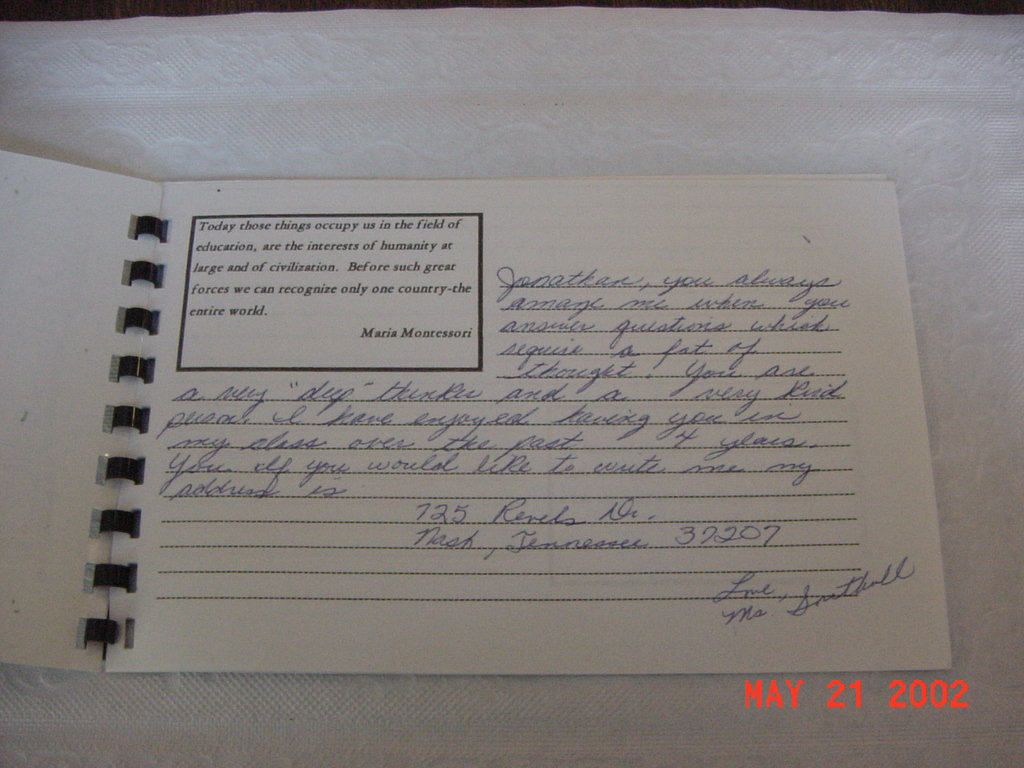 Today those things occupy us in the field of
education, are the interests of humanity at
large and of civilization. Before such great
forces we can recognize only one country-the
entire world.
Maria Montessori
Jonathan, you always
amaze me when you
answer questions which
require a lot of
thought. You are
a very "deep" thinker and a very kind
person. I have enjoyed having you in
my class over the past 4 years.
You. If you would like to write me my
address is
725 Revels Dr.
Nash, Tennessee 37207
Love,
Ms Southall
MAY 21 2002